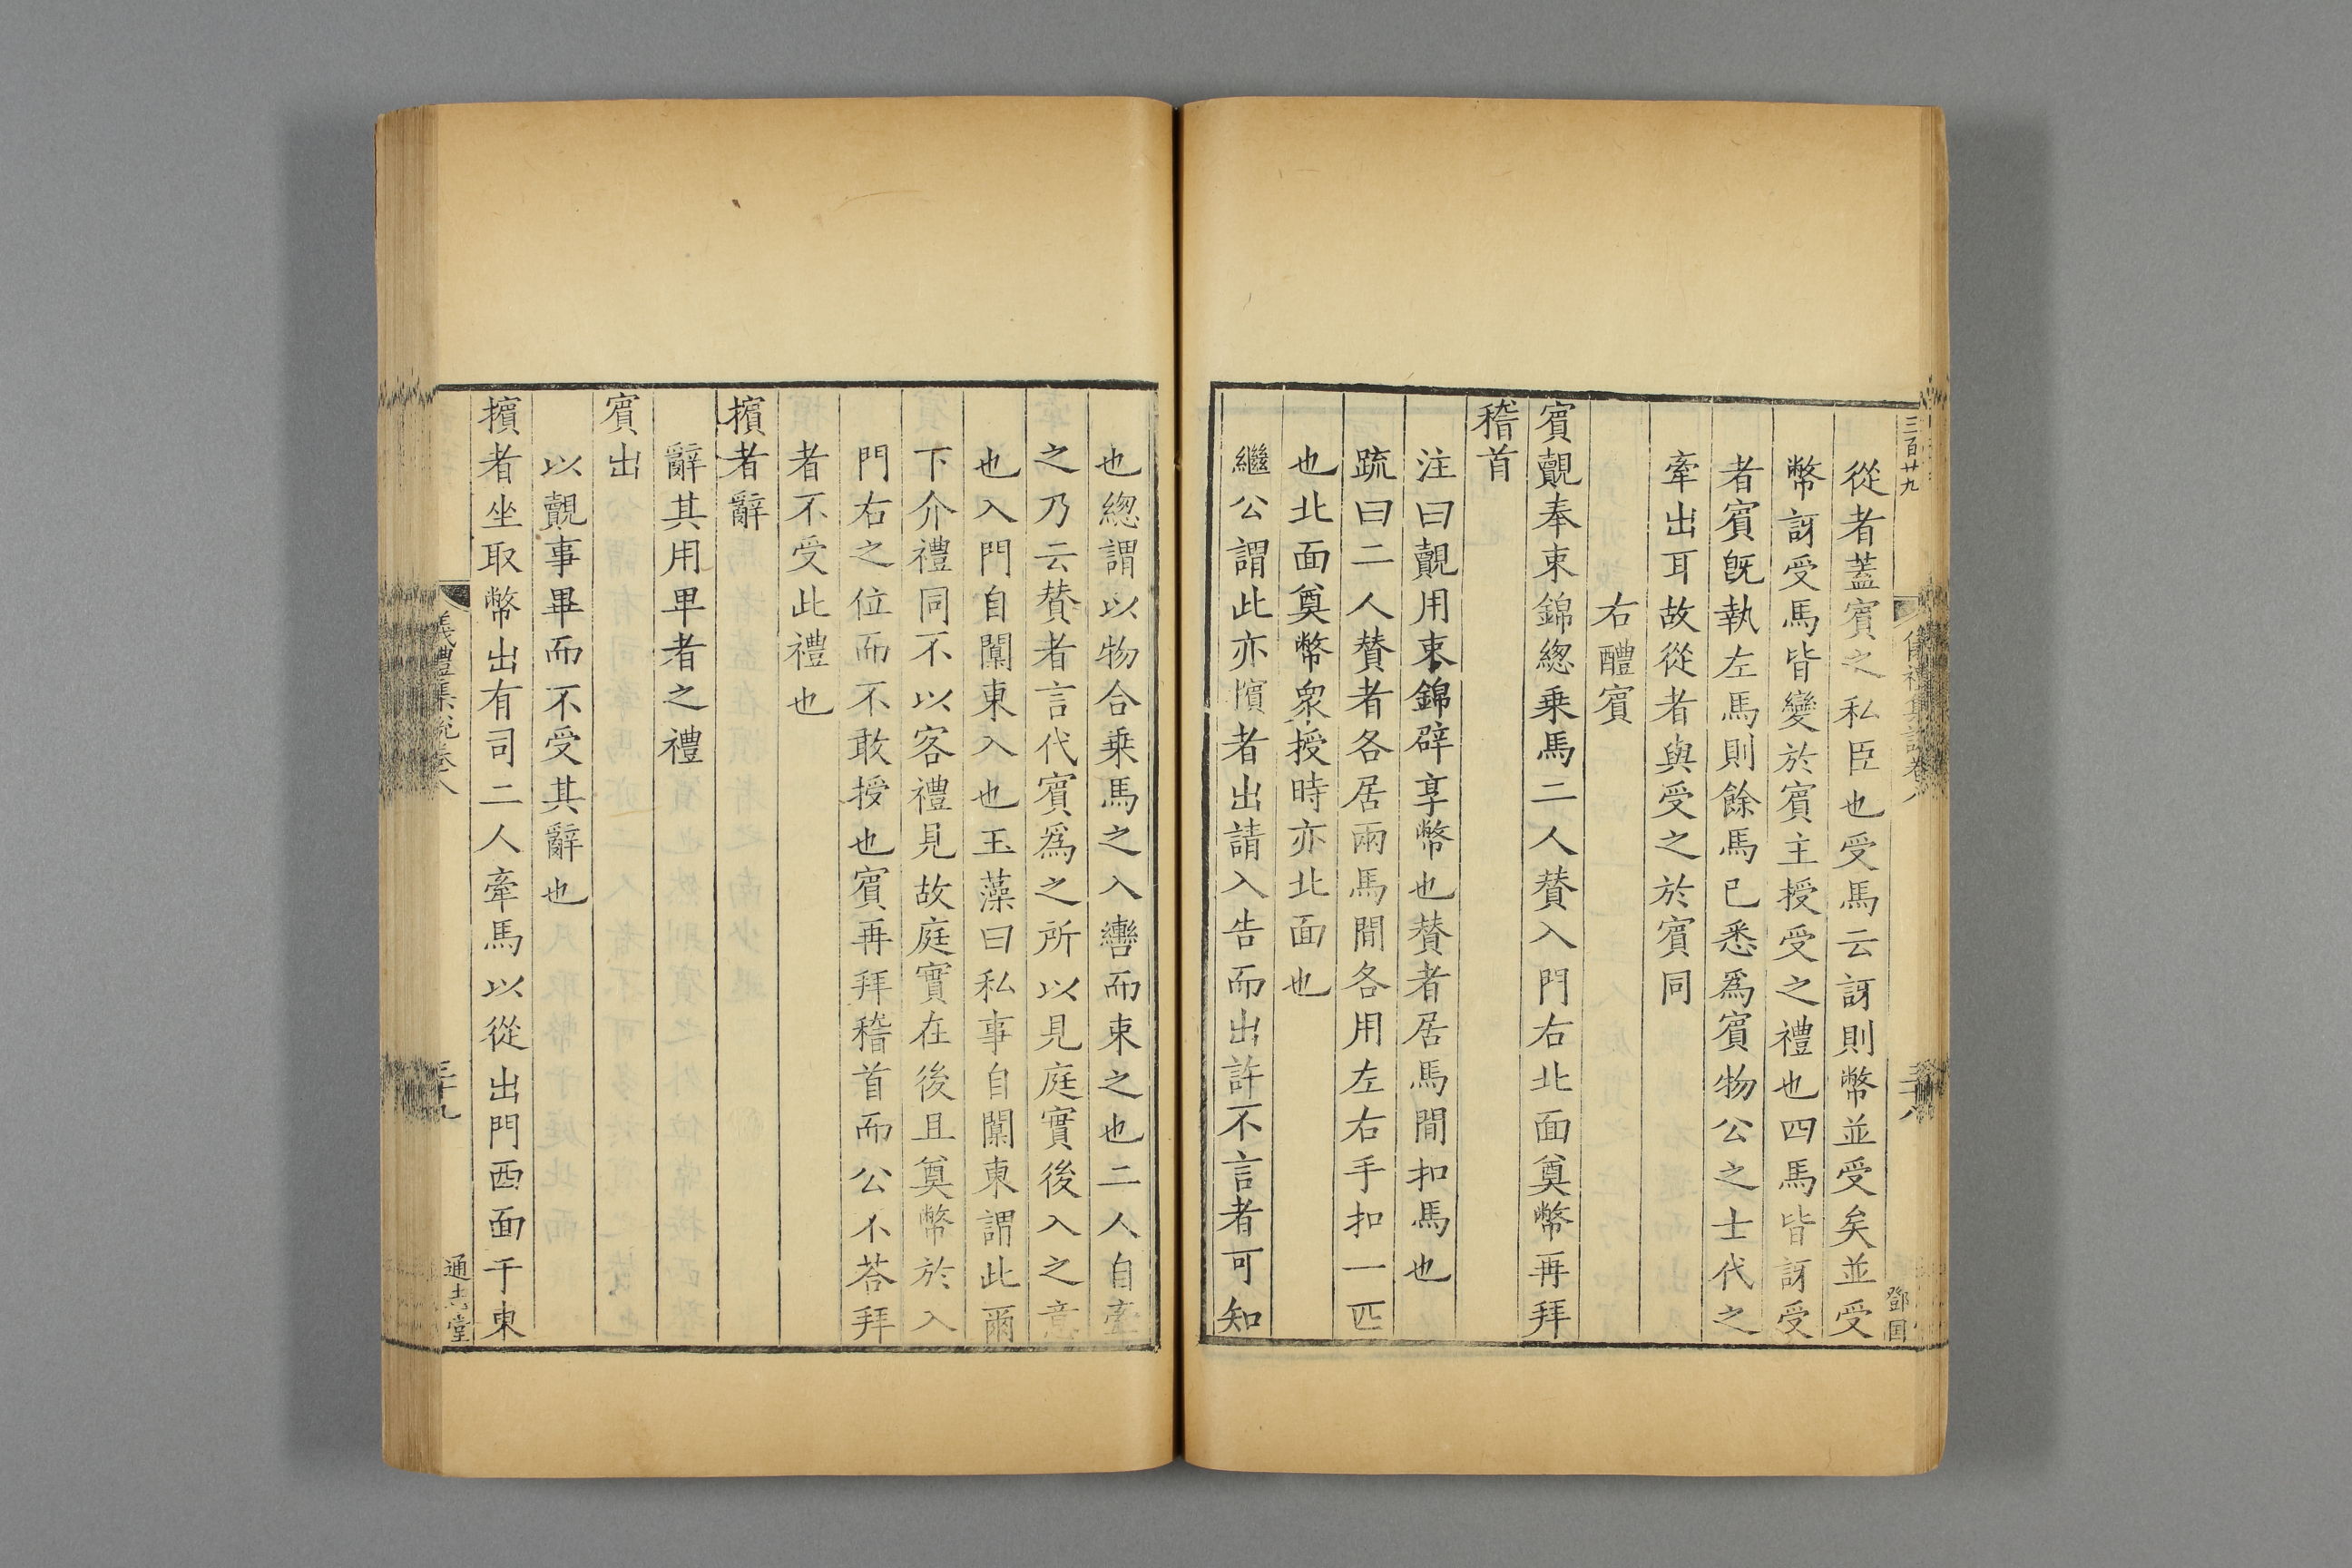 三百廿九
儀禮集說卷八
三十八
鄧国
從者蓋賔之私臣也受馬云訝則幣並受矣並受
幣訝受馬皆變於賔主授受之禮也四馬皆訝受
者賔旣執左馬則餘馬已悉爲賔物公之士代之
牽出耳故從者與受之於賔同
右醴賔
賔覿奉束錦緫乗馬二人賛入門右北面奠幣再拜
稽首
注曰覿用束錦辟享幣也賛者居馬間扣馬也
疏曰二人賛者各居兩馬間各用左右手扣一匹
也北面奠幣衆授時亦北面也
繼公謂此亦擯者出請入告而出許不言者可知
也緫謂以物合乗馬之入轡而束之也二人自牽
之乃云賛者言代賔爲之所以見庭實後入之意
也入門自闑東入也玉藻曰私事自闑東謂此爾
下介禮同不以客禮見故庭實在後且奠幣於入
門右之位而不敢授也賔再拜稽首而公不荅拜
者不受此禮也
擯者辭
辭其用卑者之禮
賔出
以覿事畢而不受其辭也
擯者坐取幣出有司二人牽馬以從出門西面于東
儀禮集說卷八
三十九
通志堂